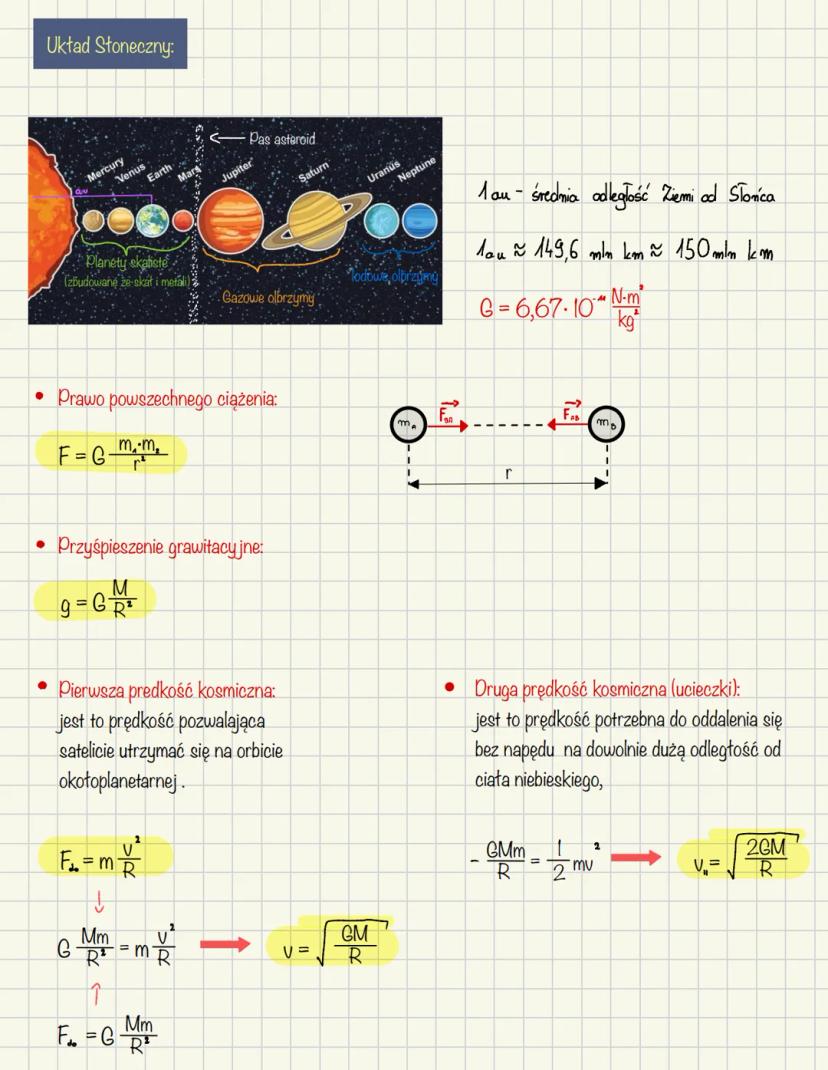 Układ Słoneczny:
Pas asteroid
Mercury Venus Earth Mars Jupiter Saturn Uranus Neptune
au
Planety skaliste
(zbudowane ze skał i metali)
Gazowe olbrzymy
lodowe olbrzymy
1 au - średnia odległość Ziemi od Słońca
1 au ≈ 149,6 mln km ≈ 150 mln km
G = 6,67 · 10⁻¹¹ N·m²/kg²
• Prawo powszechnego ciążenia:
F = G m₁·m₂/r²
m_A F_BA F_AB m_B
r
• Przyśpieszenie grawitacyjne:
g = G M/R²
• Pierwsza predkość kosmiczna:
jest to prędkość pozwalająca
satelicie utrzymać się na orbicie
okołoplanetarnej.
F_do = m v²/R
G Mm/R² = m v²/R
v = √(GM/R)
F_do = G Mm/R²
• Druga prędkość kosmiczna (ucieczki):
jest to prędkość potrzebna do oddalenia się
bez napędu na dowolnie dużą odległość od
ciała niebieskiego,
- GMm/R = 1/2 mv²
v_II = √(2GM/R)